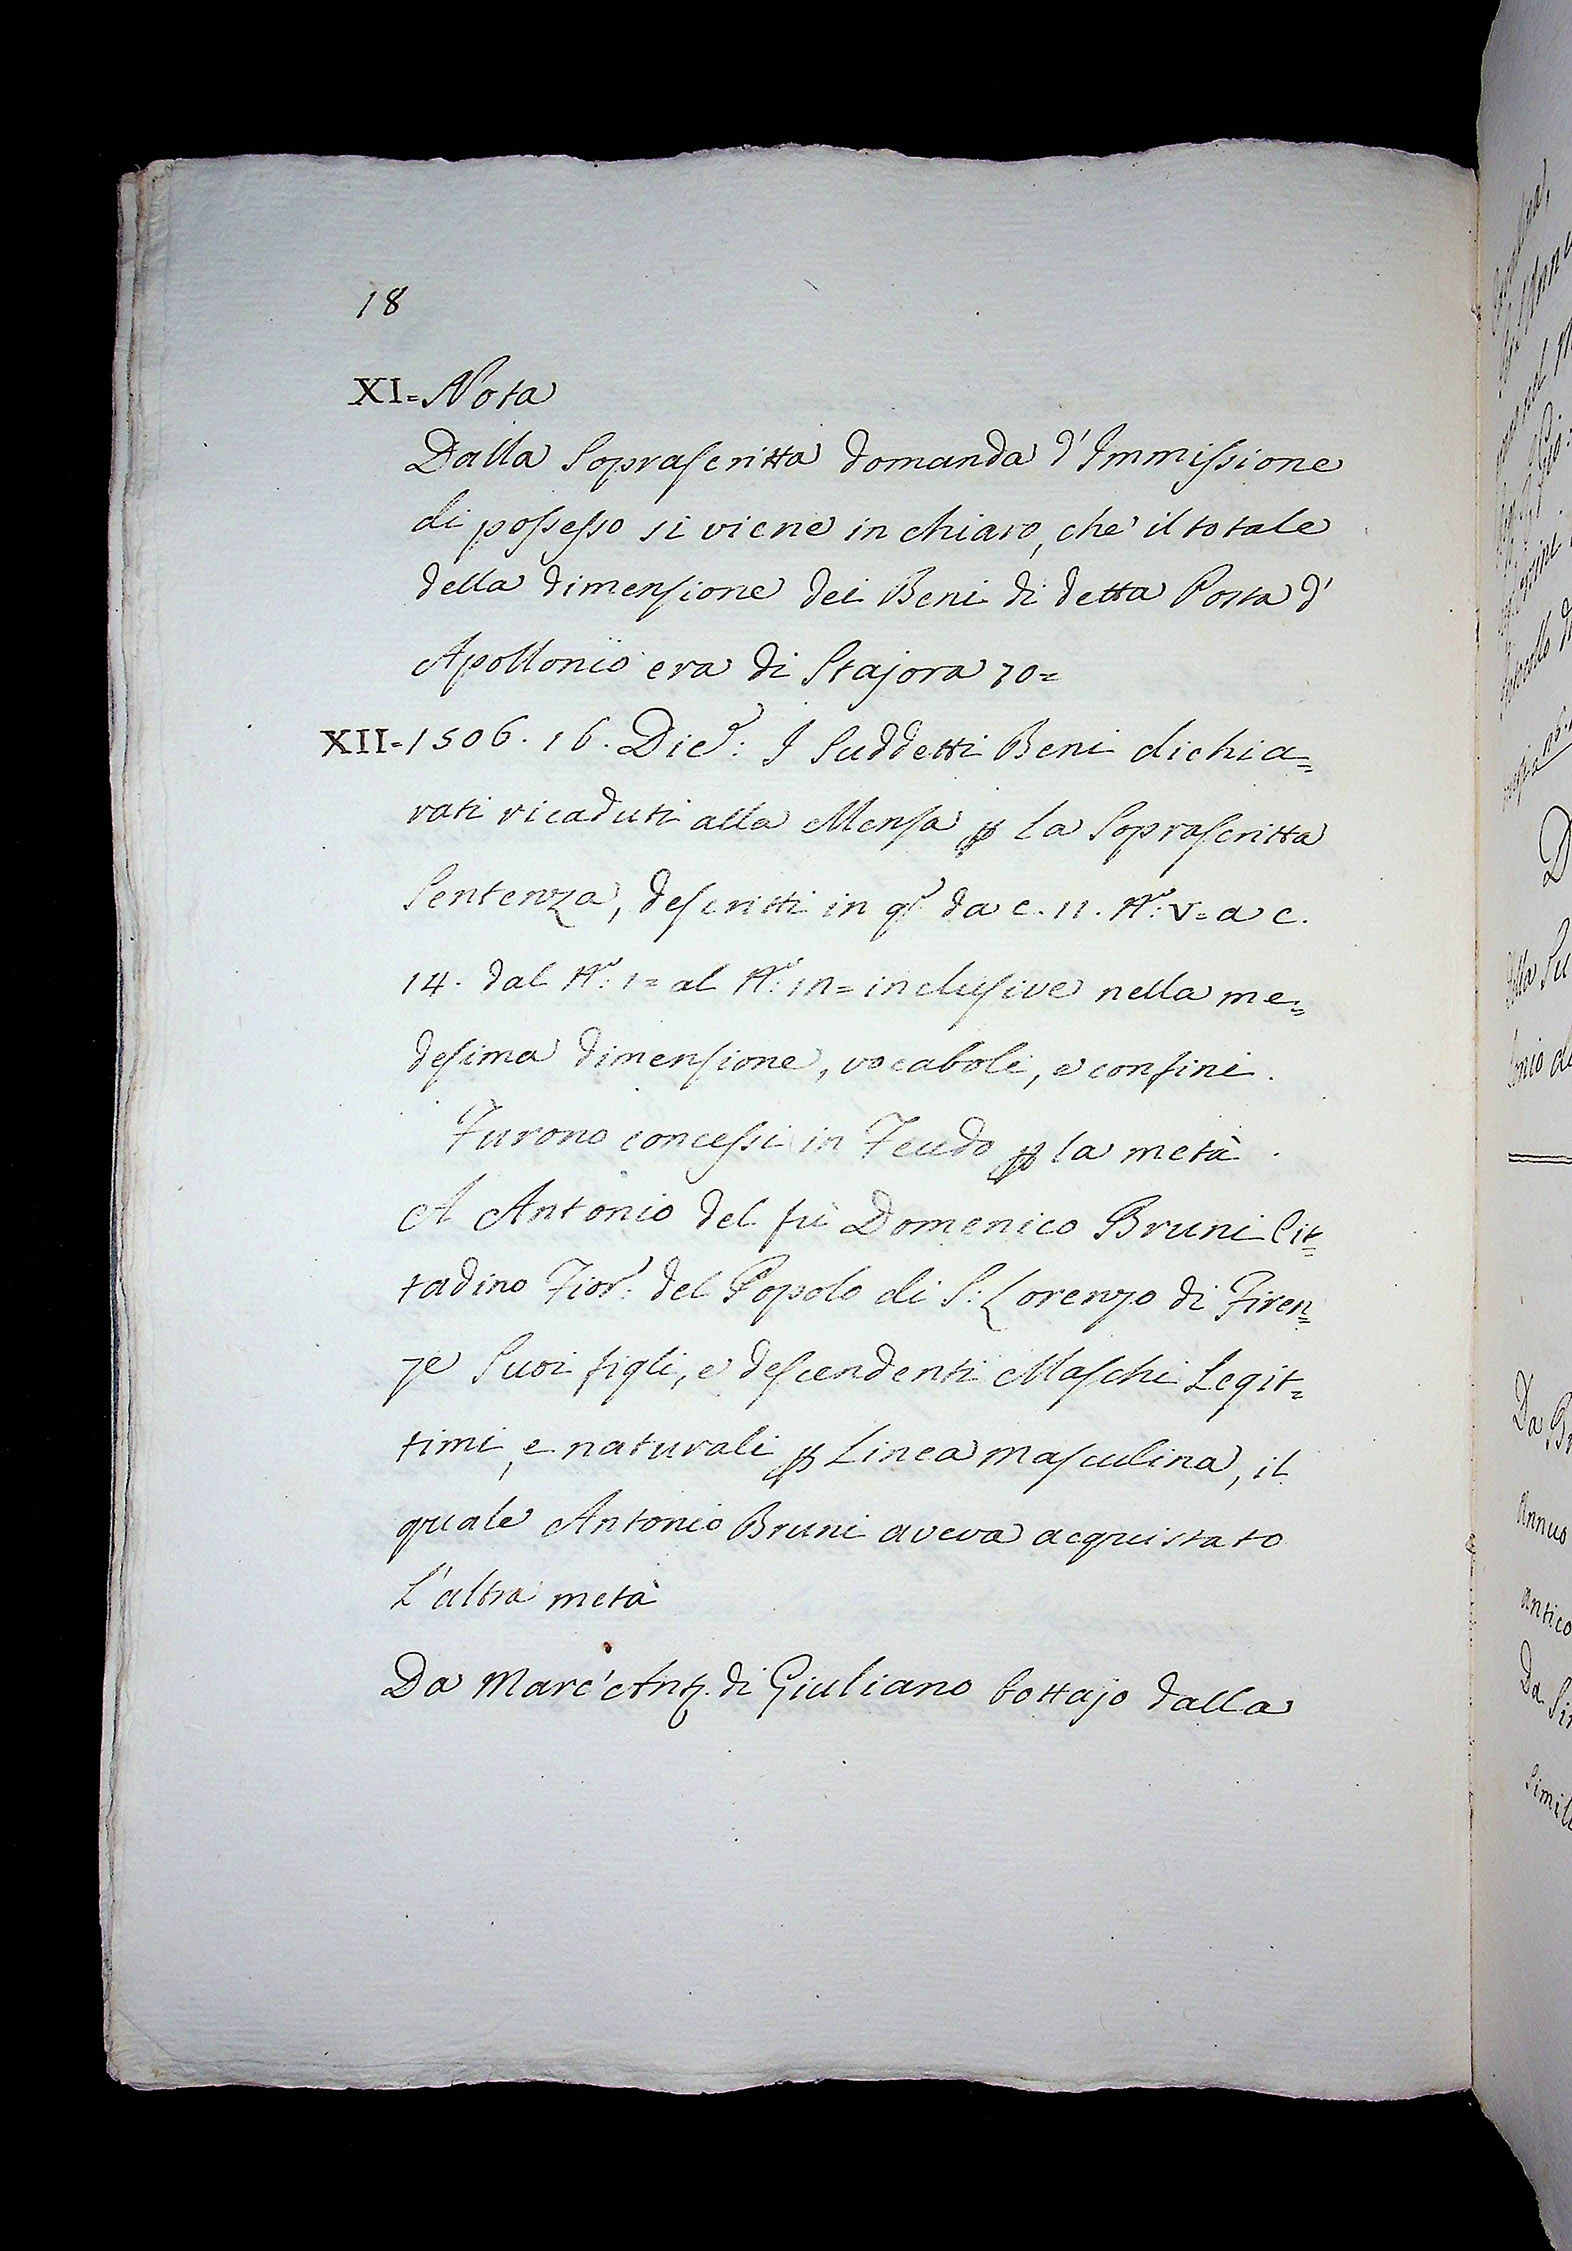 18
XI= Nota
Dalla Soprascritta domanda d'Immissione
di possesso si viene in chiaro, che il totale
della dimensione dei Beni di detta Posta d'
Apollonio era di Stajora 70=
XII= 1506. 16. Dic.e: I Suddetti Beni dichia=
rati ricaduti alla Mensa p la Soprascritta
Sentenza, descritti in q.o da c. 11. N.o: V= a c.
14. dal N.o: 1= al N.o: 17= inclusive nella me=
desima dimensione, vocaboli, e confini.
Furono concessi in Feudo p la metà.
A Antonio del fù Domenico Bruni Cit=
tadino Fior.o: del Popolo di S: Lorenzo di Firen=
ze Suoi figli, e descendenti Maschi Legit=
timi, e naturali p Linea Masculina, il
quale Antonio Bruni aveva acquistato
L'altra metà
Da Marc'Ant. di Giuliano bottajo dalla
D
della Su
Da Br
Annuo
antico
Da Si
Simil